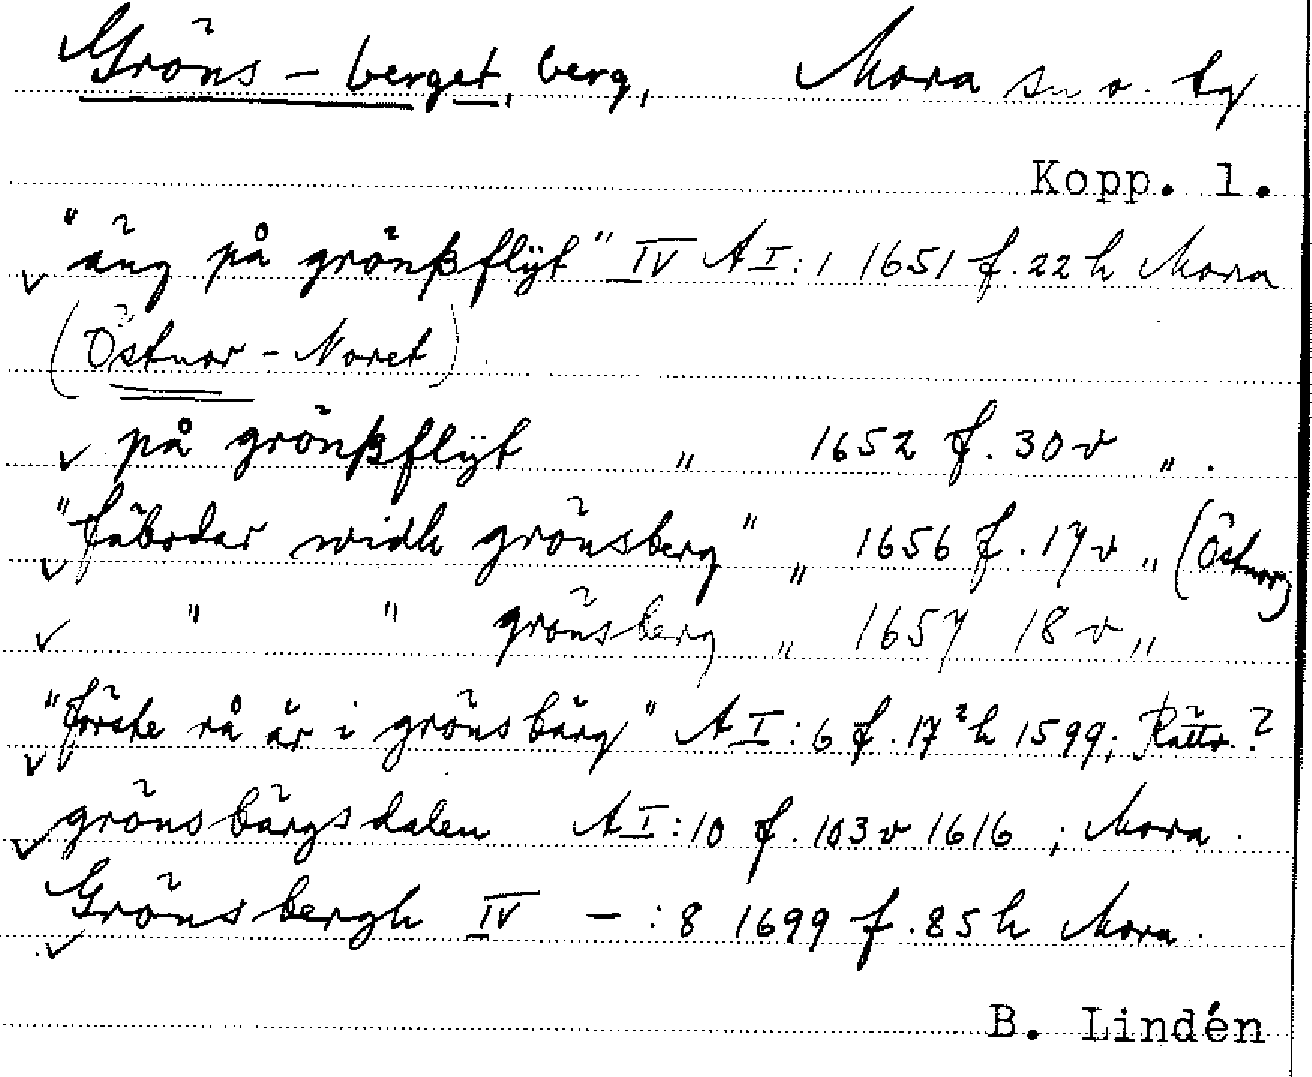 Gröns-berget, berg, Mora sn o. by
Kopp. l.
"äng på grönßflÿt" IV A I:1 1651 f. 22 h Mora
(Östnor - Noret)
på grönßflÿt " 1652 f. 30 v " .
"fäbodar widh grönsberg" " 1656 f. 17 v " (Östnor)
" " grönsberg " 1657 18 v "
"förste rå är i grönsbärg" A I:6 f. 17² h 1599; Rättv. ?
grönsbärgsdalen A I:10 f. 103 v 1616 ; Mora .
Grönsbergh IV - :8 1699 f. 85 h Mora .
B. Lindén